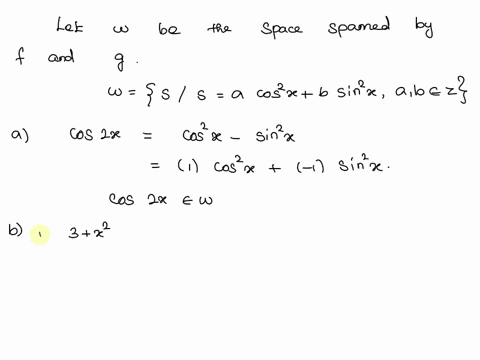 Let w be the space spanned by
f and g.
w = { s / s = a cos²x + b sin²x, a,b ∈ z}
a) cos 2x = cos²x - sin²x
= (1) cos²x + (-1) sin²x.
cos 2x ∈ w
b) 3+x²